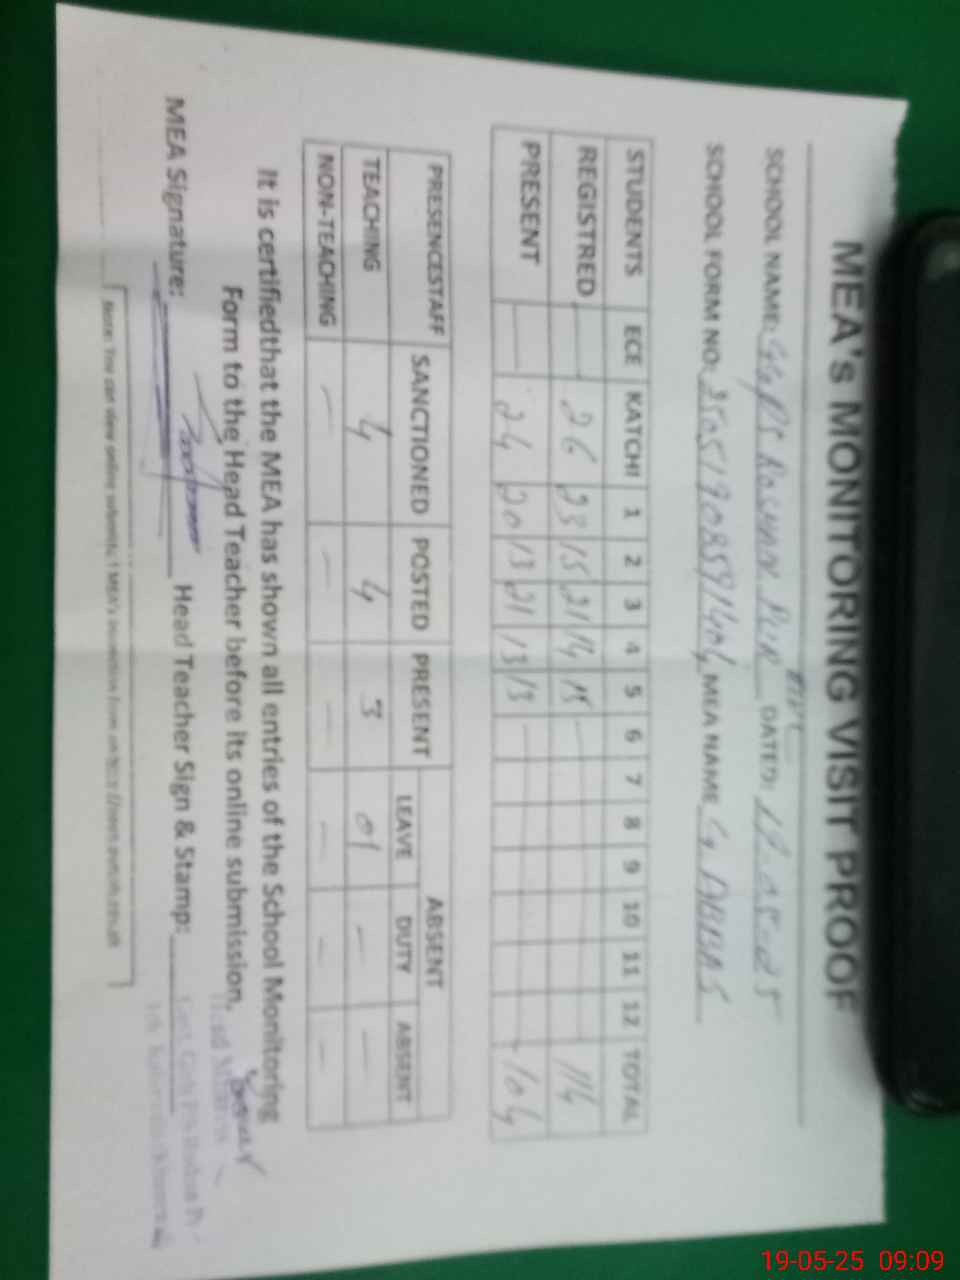 MEA's MONITORING VISIT PROOF
SCHOOL NAME: GGPS ROSHAN PUR DATED: 19-05-25
SCHOOL FORM NO: MEA NAME G ABBAS
STUDENTS ECE KATCHI 1 2 3 4 5 6 7 8 9 10 11 12 TOTAL
REGISTRED — 26 23 15 21 14 15 — 114
PRESENT — 24 20 13 21 13 13 — 104
PRESENCESTAFF SANCTIONED POSTED PRESENT ABSENT
LEAVE DUTY ABSENT
TEACHING 4 4 3 01 — —
NON-TEACHING — — — — — —
It is certifiedthat the MEA has shown all entries of the School Monitoring
Form to the Head Teacher before its online submission.
MEA Signature: Head Teacher Sign & Stamp:
Note: You can view online submitted MEA's
19-05-25 09:09